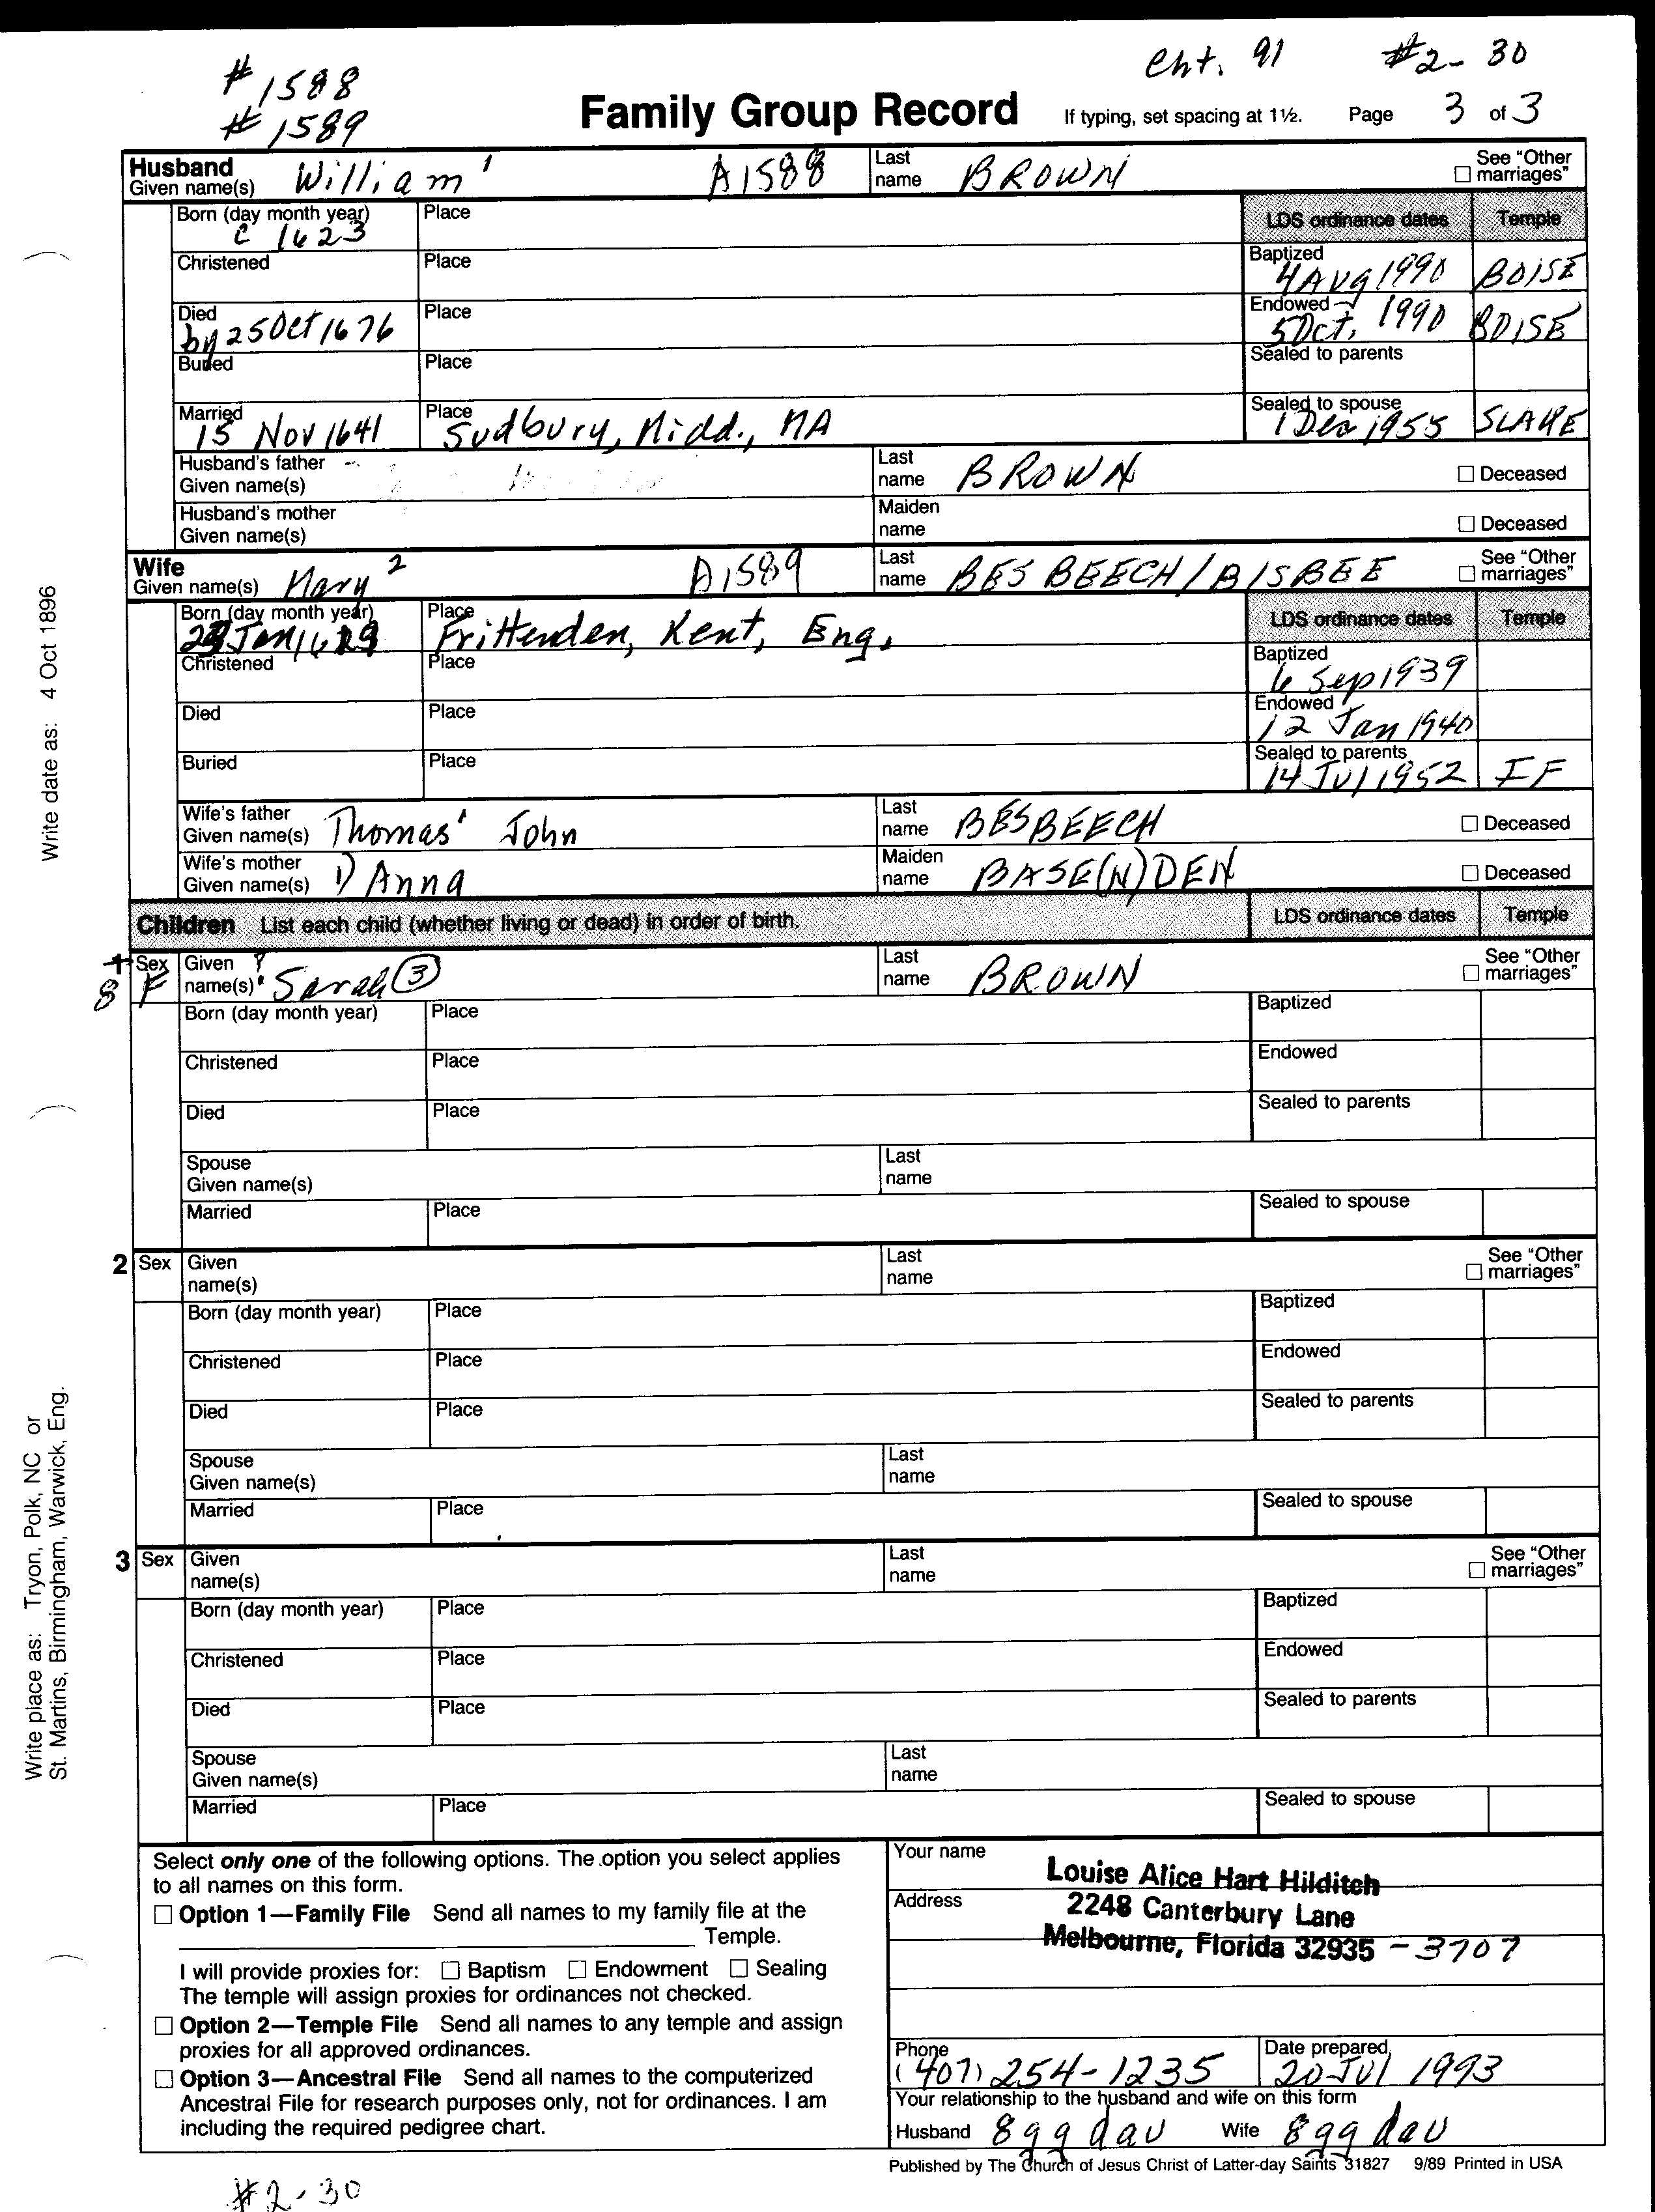 # 1588
# 1589
Cht. 91 #2-30
Family Group Record If typing, set spacing at 1½. Page 3 of 3
Husband
Given name(s) William ¹ A1588 Last name BROWN ☐ See "Other marriages"
Born (day month year) c 1623 Place LDS ordinance dates Temple
Christened Place Baptized 4 Aug 1990 BOISE
Died by 25 Oct 1676 Place Endowed 5 Oct, 1990 BOISE
Buried Place Sealed to parents
Married 15 Nov 1641 Place Sudbury, Midd., MA Sealed to spouse 1 Dec 1955 SLAKE
Husband's father Given name(s) Last name BROWN ☐ Deceased
Husband's mother Given name(s) Maiden name ☐ Deceased
Wife
Given name(s) Mary ² A1589 Last name BESBEECH/BISBEE ☐ See "Other marriages"
Born (day month year) Jan Place Frittenden, Kent, Eng. LDS ordinance dates Temple
Christened Place Baptized 6 Sep 1939
Died Place Endowed 12 Jan 1940
Buried Place Sealed to parents 14 Jul 1952 IF
Wife's father Given name(s) Thomas¹ John Last name BESBEECH ☐ Deceased
Wife's mother Given name(s) 1) Anna Maiden name BASE(N)DEN ☐ Deceased
Children List each child (whether living or dead) in order of birth. LDS ordinance dates Temple
1 8 Sex F Given name(s) ? Sarah (3) Last name BROWN ☐ See "Other marriages"
Born (day month year) Place Baptized
Christened Place Endowed
Died Place Sealed to parents
Spouse Given name(s) Last name
Married Place Sealed to spouse
2 Sex Given name(s) Last name ☐ See "Other marriages"
Born (day month year) Place Baptized
Christened Place Endowed
Died Place Sealed to parents
Spouse Given name(s) Last name
Married Place Sealed to spouse
3 Sex Given name(s) Last name ☐ See "Other marriages"
Born (day month year) Place Baptized
Christened Place Endowed
Died Place Sealed to parents
Spouse Given name(s) Last name
Married Place Sealed to spouse
Select only one of the following options. The option you select applies
to all names on this form.
☐ Option 1—Family File Send all names to my family file at the
Temple.
I will provide proxies for: ☐ Baptism ☐ Endowment ☐ Sealing
The temple will assign proxies for ordinances not checked.
☐ Option 2—Temple File Send all names to any temple and assign
proxies for all approved ordinances.
☐ Option 3—Ancestral File Send all names to the computerized
Ancestral File for research purposes only, not for ordinances. I am
including the required pedigree chart.
Your name Louise Alice Hart Hilditch
Address 2248 Canterbury Lane
Melbourne, Florida 32935 -3707
Phone (407) 254-1235 Date prepared 20 Jul 1993
Your relationship to the husband and wife on this form
Husband 8 gg dau Wife 8 gg dau
Published by The Church of Jesus Christ of Latter-day Saints 31827 9/89 Printed in USA
#2-30
Write date as: 4 Oct 1896
Write place as: Tryon, Polk, NC or
St. Martins, Birmingham, Warwick, Eng.